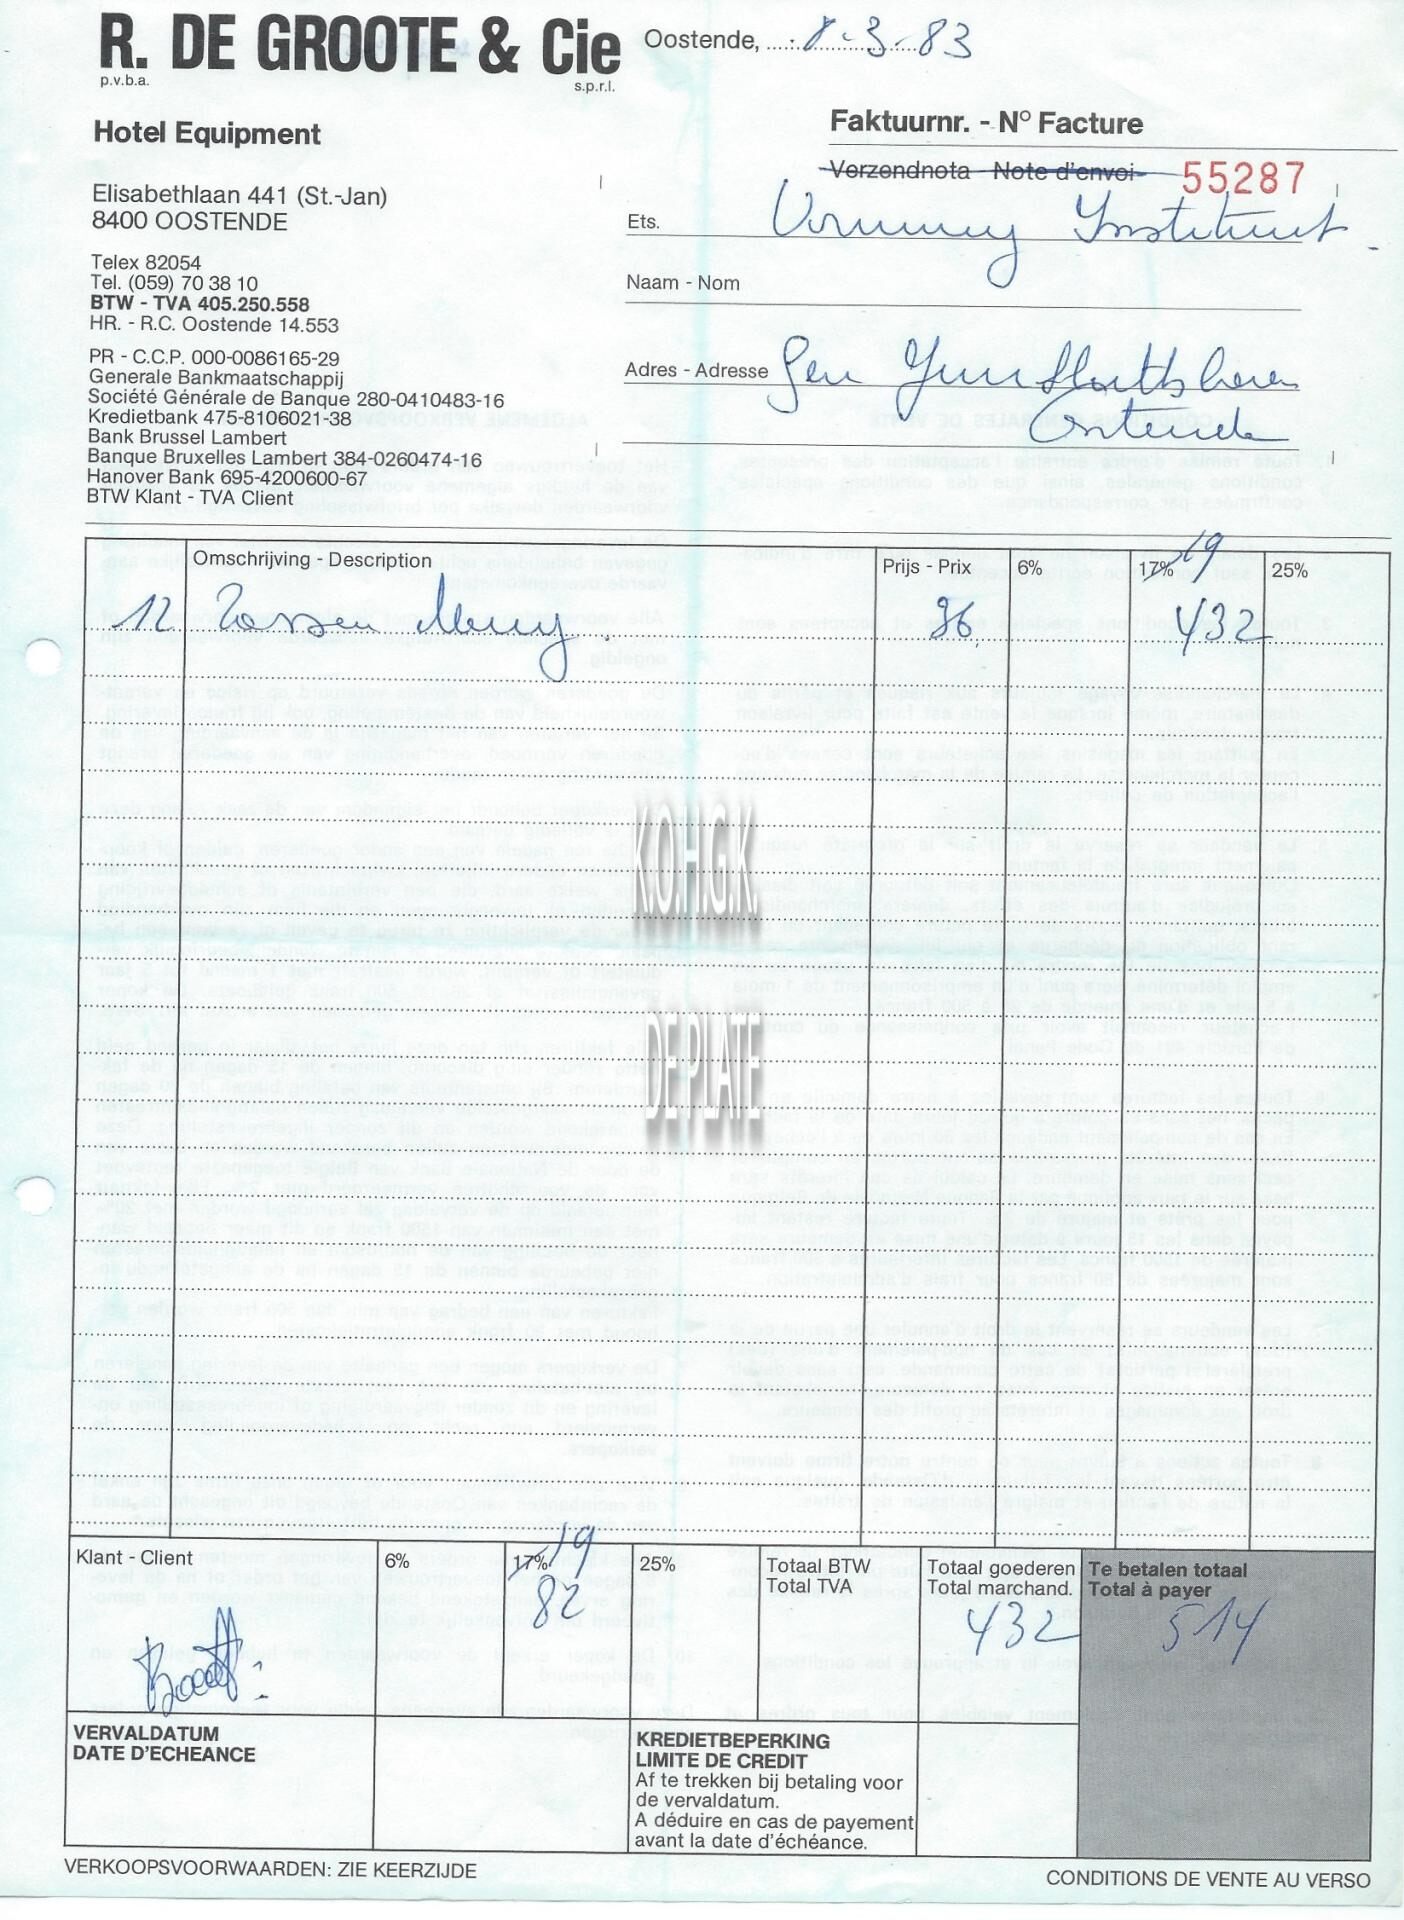 R. DE GROOTE & Cie
p.v.b.a. s.p.r.l.
Oostende, 8-3-83
Hotel Equipment
Faktuurnr. - N° Facture
Verzendnota - Note d'envoi 55287
Elisabethlaan 441 (St.-Jan)
8400 OOSTENDE
Ets. Institut
Telex 82054
Tel. (059) 70 38 10
BTW - TVA 405.250.558
HR. - R.C. Oostende 14.553
Naam - Nom
PR - C.C.P. 000-0086165-29
Generale Bankmaatschappij
Société Générale de Banque 280-0410483-16
Kredietbank 475-8106021-38
Bank Brussel Lambert
Banque Bruxelles Lambert 384-0260474-16
Hanover Bank 695-4200600-67
BTW Klant - TVA Client
Adres - Adresse Gen
Oostende
Omschrijving - Description Prijs - Prix 6% 17% 19 25%
12 Tassen 36 432
KO.H.G.K
DE PLATE
Klant - Client 6% 17% 19 25% Totaal BTW Totaal goederen Te betalen totaal
Total TVA Total marchand. Total à payer
82 432 514
VERVALDATUM
DATE D'ECHEANCE
KREDIETBEPERKING
LIMITE DE CREDIT
Af te trekken bij betaling voor
de vervaldatum.
A déduire en cas de payement
avant la date d'échéance.
VERKOOPSVOORWAARDEN: ZIE KEERZIJDE
CONDITIONS DE VENTE AU VERSO